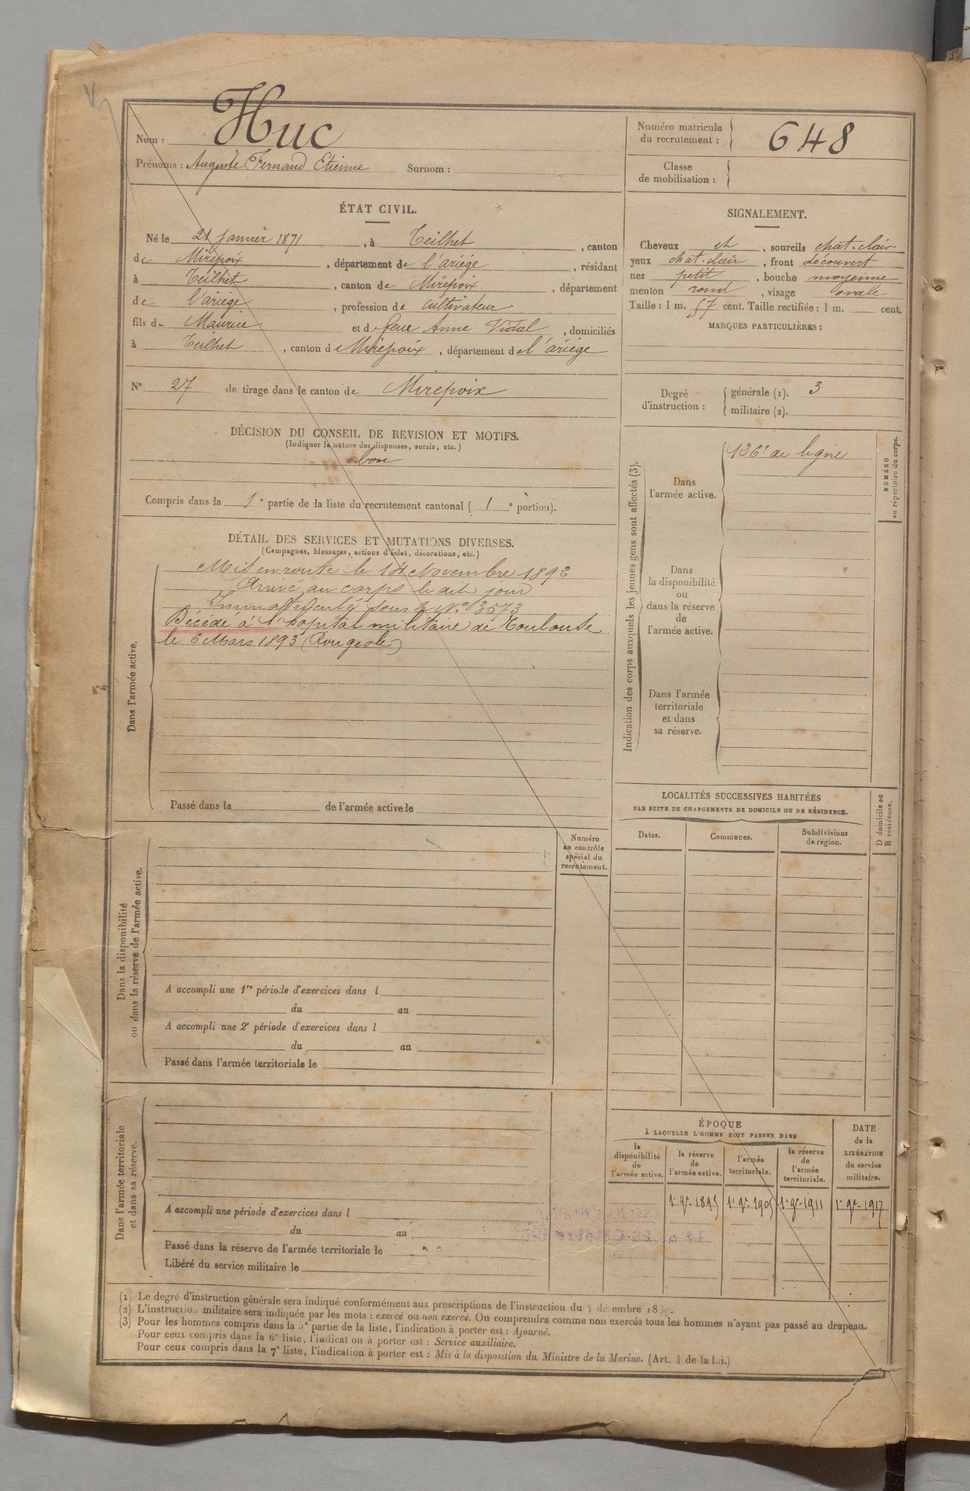 Nom : Huc
Prénoms : Auguste Fernand Etienne Surnom :
Numéro matricule du recrutement : 648
Classe de mobilisation :
ÉTAT CIVIL.
Né le janvier 1871, à Teilhet, canton
de Mirepoix, département de l'ariége, résidant
à Teilhet, canton de Mirepoix, département
de l'ariége, profession de Cultivateur
fils de Maurice et de feue Anne Vidal, domiciliés
à Teilhet, canton de Mirepoix, département de l'ariége
N° 27 de tirage dans le canton de Mirepoix
DÉCISION DU CONSEIL DE REVISION ET MOTIFS.
(Indiquer la nature des dispenses, sursis, etc.)
bon
Compris dans la 1e partie de la liste du recrutement cantonal ( 1 e portion).
SIGNALEMENT.
Cheveux ch, sourcils chat-clair
yeux chat-clair, front découvert
nez petit, bouche moyenne
menton rond, visage ovale
Taille : 1 m. 57 cent. Taille rectifiée : 1 m. cent.
MARQUES PARTICULIÈRES :
Degré d'instruction :
générale (1). 3
militaire (2).
DÉTAIL DES SERVICES ET MUTATIONS DIVERSES.
(Campagnes, blessures, actions d'éclat, décorations, etc.)
Dans l'armée active.
Mis en route le 14 Novembre 1892
Arrivé au corps le dit jour
Immatriculé sous le N° 3573
Décédé à l'hopital militaire de Toulouse
le 6 Mars 1893 (Rougeole)
Passé dans la de l'armée active le
Indication des corps auxquels les jeunes gens sont affectés (3).
NUMÉRO au répertoire du corps.
Dans l'armée active.
126e de ligne
Dans la disponibilité ou dans la réserve de l'armée active.
Dans l'armée territoriale et dans sa réserve.
LOCALITÉS SUCCESSIVES HABITÉES
PAR SUITE DE CHANGEMENTS DE DOMICILE OU DE RÉSIDENCE.
Dates. Communes. Subdivisions de région. D domicile ou R résidence.
Dans la disponibilité ou dans la réserve de l'armée active.
Numéro au contrôle spécial du recrutement.
A accompli une 1re période d'exercices dans l
du au
A accompli une 2e période d'exercices dans l
du au
Passé dans l'armée territoriale le
Dans l'armée territoriale et dans sa réserve.
A accompli une période d'exercices dans l
du au
Passé dans la réserve de l'armée territoriale le
Libéré du service militaire le
ÉPOQUE
À LAQUELLE L'HOMME DOIT PASSER DANS
la disponibilité de l'armée active. la réserve de l'armée active. l'armée territoriale. la réserve de l'armée territoriale.
DATE de la LIBÉRATION du service militaire.
1er 9bre 1895 1er 9bre 1905 1er 9bre 1911 1er 9bre 1917
(1) Le degré d'instruction générale sera indiqué conformément aux prescriptions de l'instruction du 4 décembre
(2) L'instruction militaire sera indiquée par les mots : exercé ou non exercé. On comprendra comme non exercés tous les hommes n'ayant pas passé au drapeau.
(3) Pour les hommes compris dans la 5e partie de la liste, l'indication à porter est : Ajourné.
Pour ceux compris dans la 6e liste, l'indication à porter est : Service auxiliaire.
Pour ceux compris dans la 7e liste, l'indication à porter est : Mis à la disposition du Ministre de la Marine. (Art. 4 de la loi.)